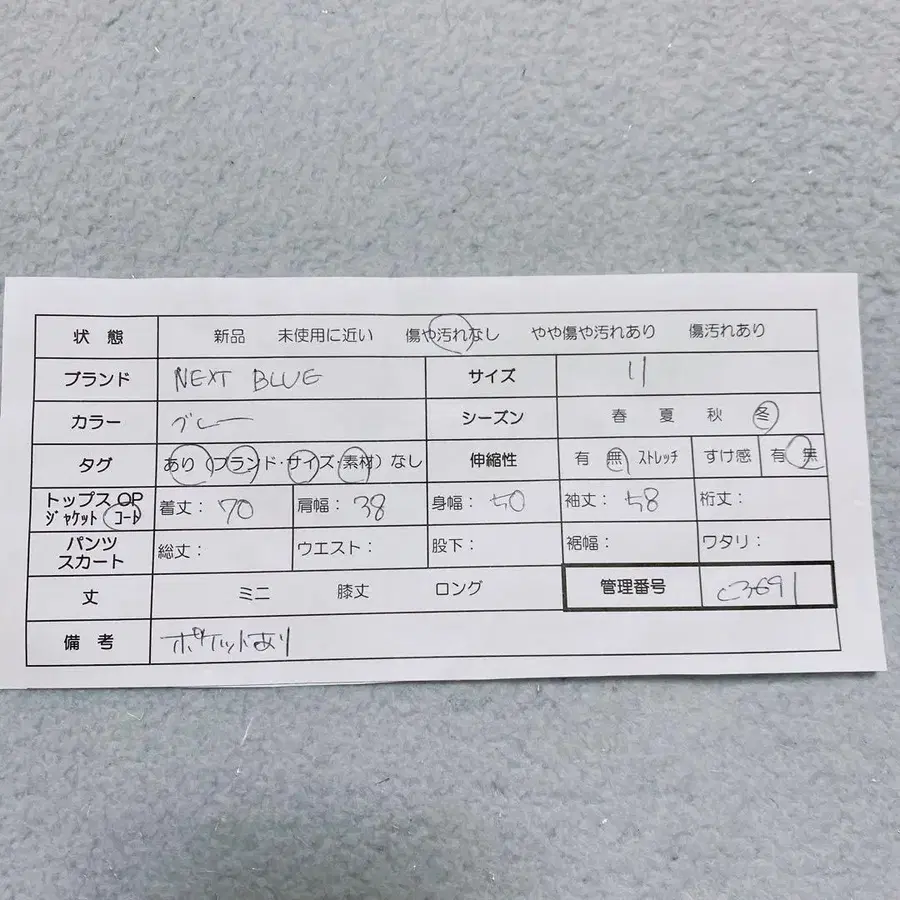 状 態 新品 未使用に近い 傷や汚れなし やや傷や汚れあり 傷汚れあり
ブランド NEXT BLUE サイズ 11
カラー グレー シーズン 春 夏 秋 冬
タグ あり (ブランド・サイズ・素材) なし 伸縮性 有 無 ストレッチ すけ感 有 無
トップス OP ジャケット コート 着丈: 70 肩幅: 38 身幅: 50 袖丈: 58 裄丈:
パンツ スカート 総丈: ウエスト: 股下: 裾幅: ワタリ:
丈 ミニ 膝丈 ロング 管理番号 c3691
備 考 ポケットあり